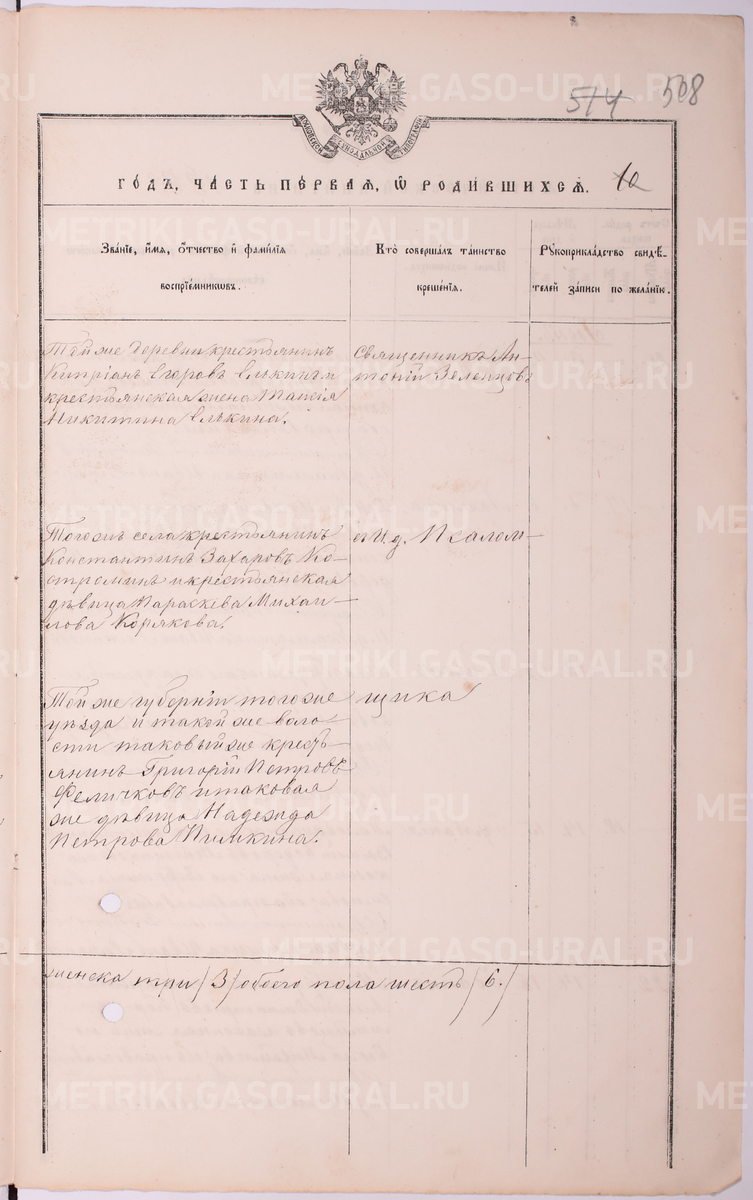 METRIKI.GASO-URAL.RU
514 508
ГОДЪ, ЧАСТЬ ПЕРВАЯ, Ѡ РОДИВШИХСЯ. 10
Званіе, имя, отчество и фамилія воспріемниковъ.
Кто совершалъ таинство крещенія.
Рукоприкладство свидѣтелей записи по желанію.
Той же деревни крестьянинъ
Кипріанъ Егоровъ Елькинъ и
крестьянская жена Таисія
Никитина Елькина.
Священникъ Ан-
тоній Зеленцовъ
Того же села крестьянинъ
Константинъ Захаровъ Ко-
строминъ и крестьянская
дѣвица Параскева Михаи-
лова Корякова.
и И. д. Псалом-
Той же губерніи того же
уѣзда и такой же воло-
сти таковый же кресть-
янинъ Григорій Петровъ
Феличковъ и таковая
же дѣвица Надежда
Петрова Пимкина.
щика
женска три /3/ обоего пола шесть /6./